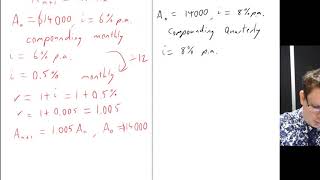 A₀ = $14000, i = 6% p.a.
compounding monthly
i = 6% p.a.
÷12
i = 0.5% monthly
r = 1 + i = 1 + 0.5%
r = 1 + 0.005 = 1.005
Aₙ₊₁ = 1.005 Aₙ, A₀ = $14000
A₀ = 14000, i = 8% p.a.
Compounding Quarterly
i = 8% p.a.